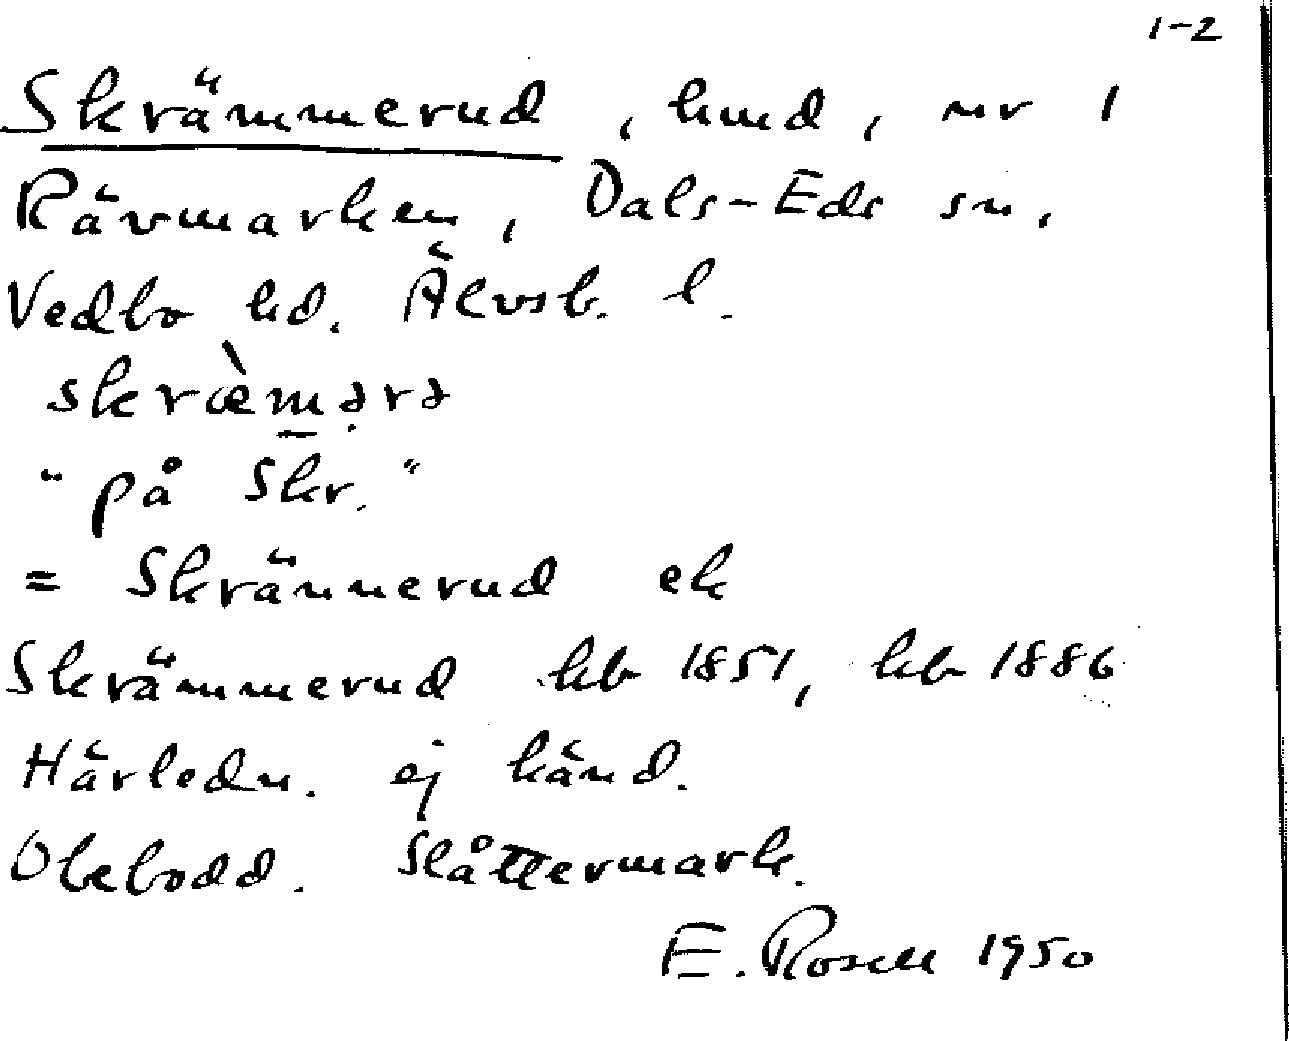 1-2
Skrämmerud, hmd, nr 1
Rävmarken, Dals-Eds sn,
Vedbo hd. Älvsb. l.
skræ̀m̲ərə
"på Skr."
= Skrännerud ek
Skrämmerud hb 1851, hb 1886
Härledn. ej känd.
Obebodd. Slåttermark.
E. Rosell 1950